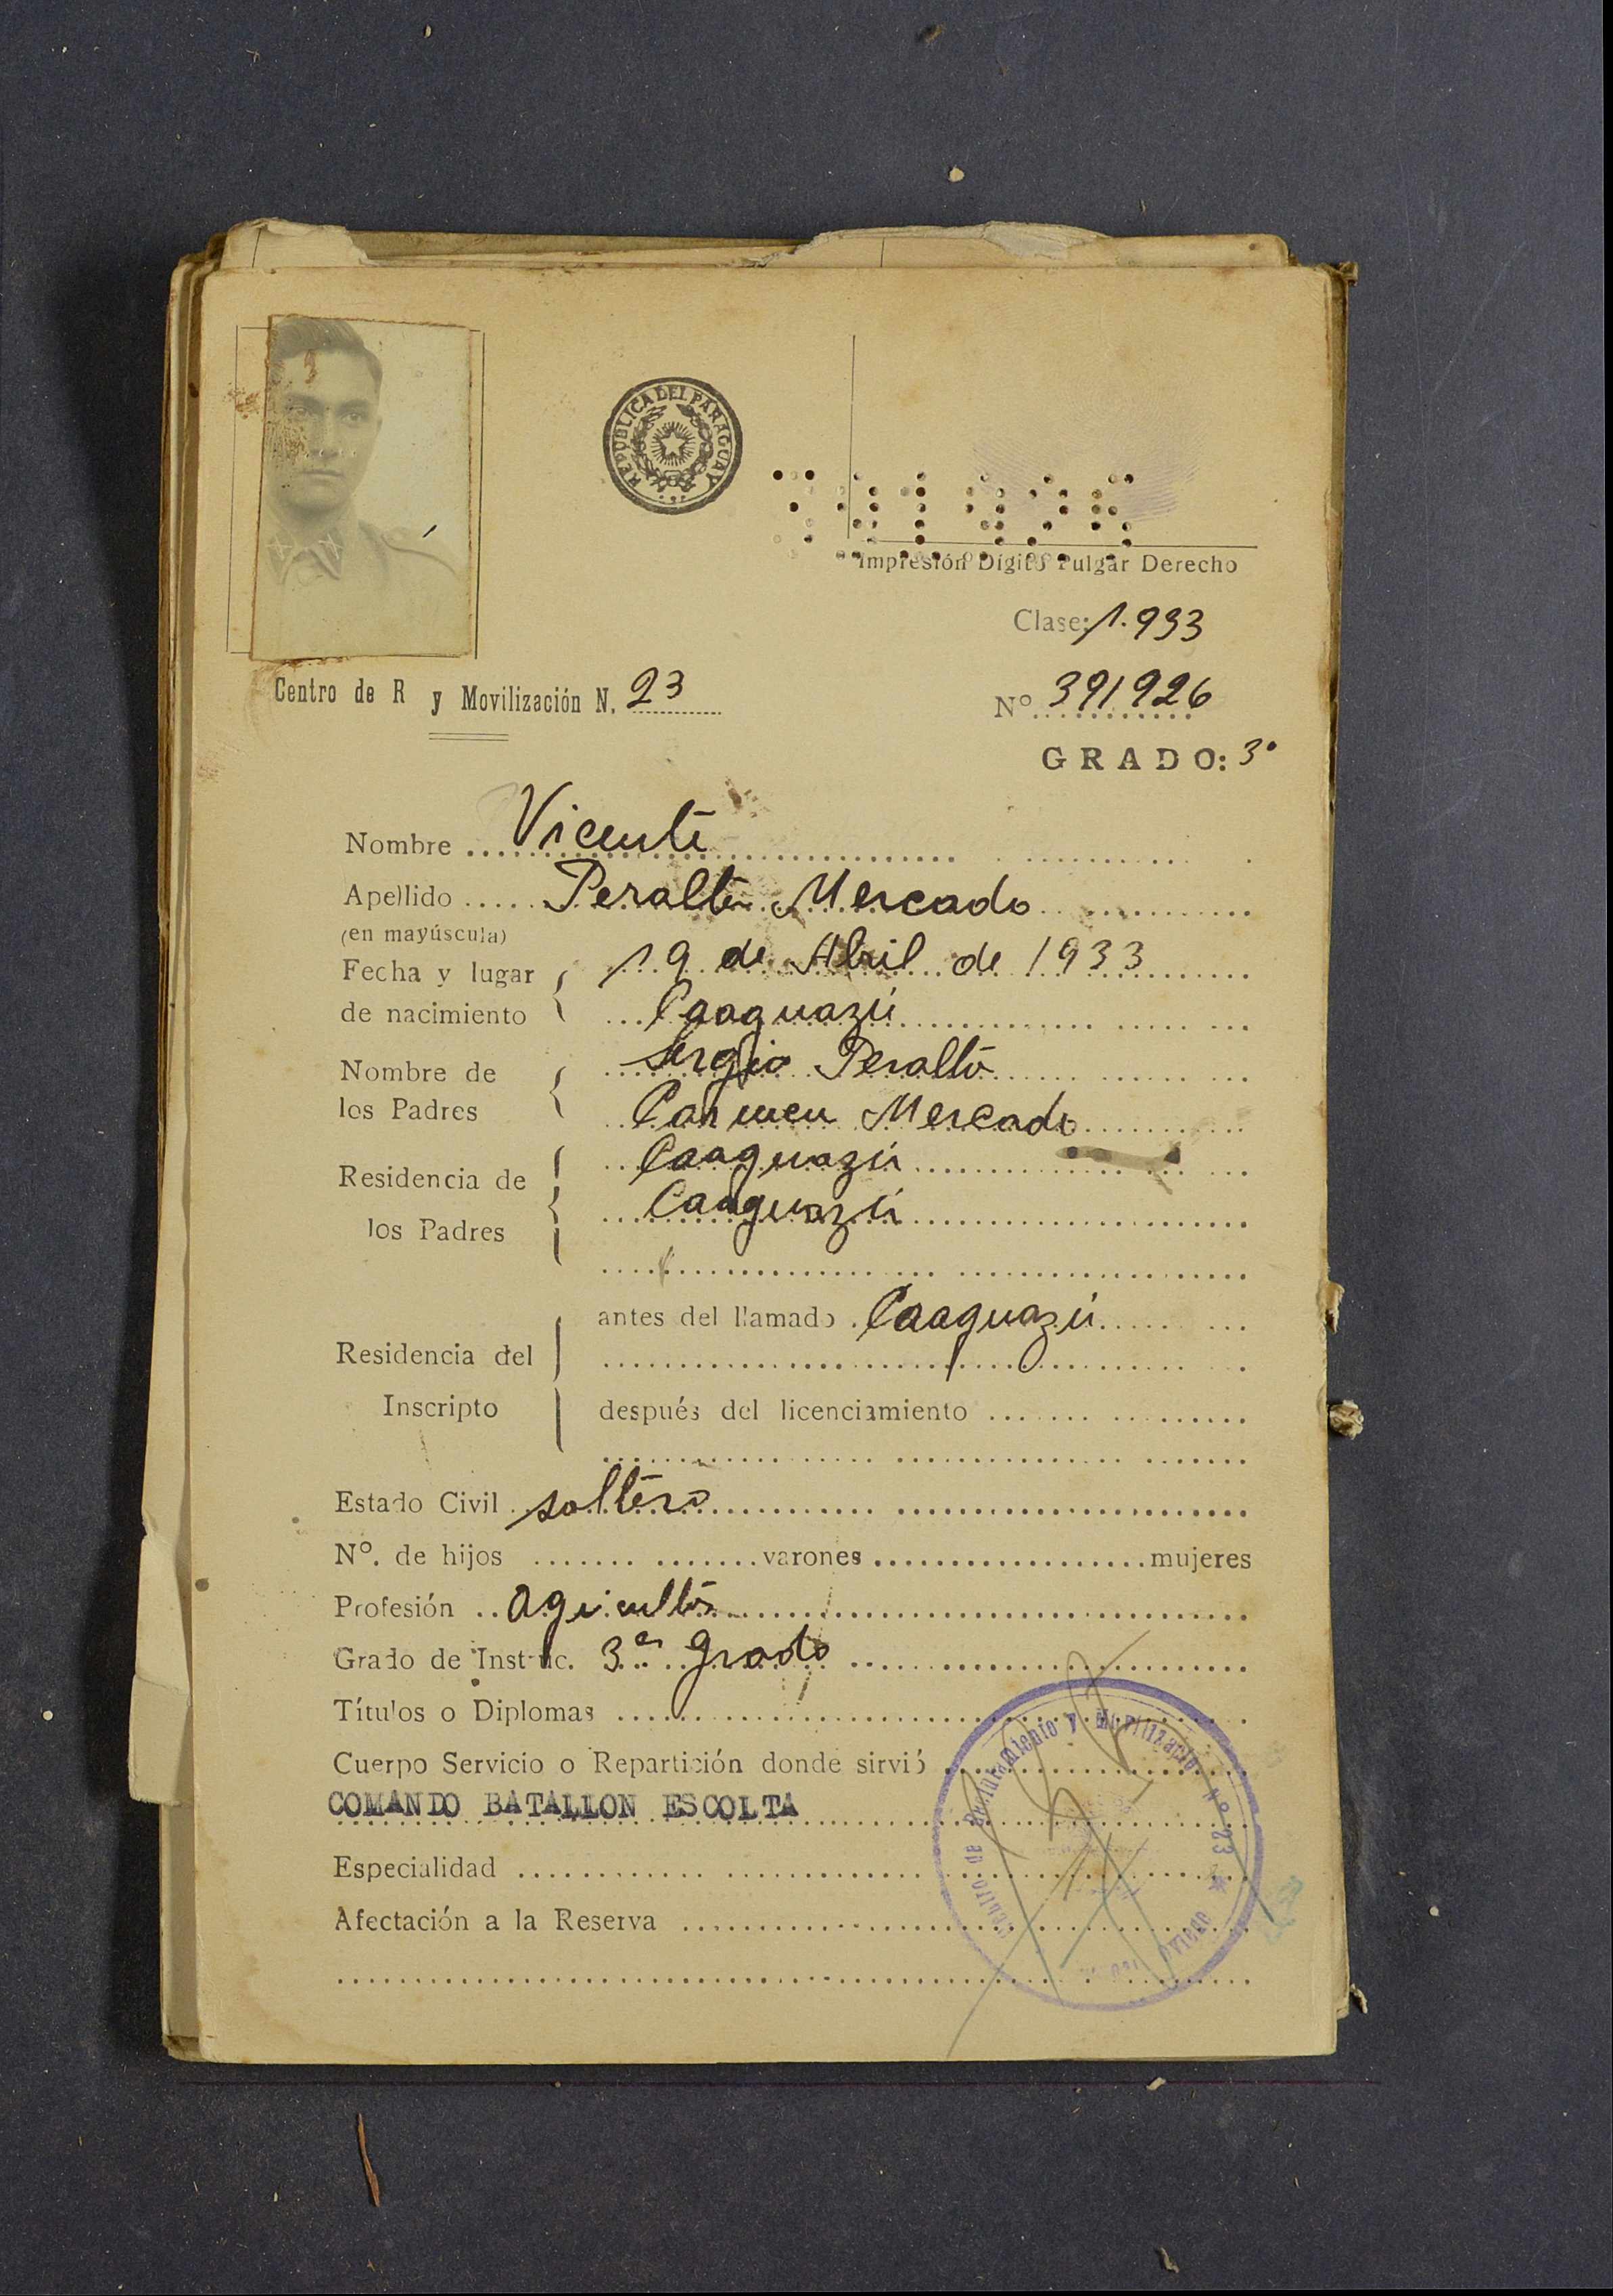 REPUBLICA DEL PARAGUAY
391926
Impresión Dígito Pulgar Derecho
Clase: 1.933
Centro de R y Movilización N. 23
Nº 391926
GRADO: 3º
Nombre Vicente
Apellido Peralta Mercado
(en mayúscula)
Fecha y lugar de nacimiento 19 de Abril de 1933
Caaguazú
Nombre de los Padres Sergio Peralta
Carmen Mercado
Residencia de los Padres Caaguazú
Caaguazú
Residencia del Inscripto
antes del llamado Caaguazú
después del licenciamiento
Estado Civil soltero
Nº. de hijos varones mujeres
Profesión agricultor
Grado de Instruc. 3er grado
Títulos o Diplomas
Cuerpo Servicio o Repartición donde sirvió
COMANDO BATALLON ESCOLTA
Especialidad
Afectación a la Reserva
Centro de Reclutamiento y Movilización Nº 23
Oviedo